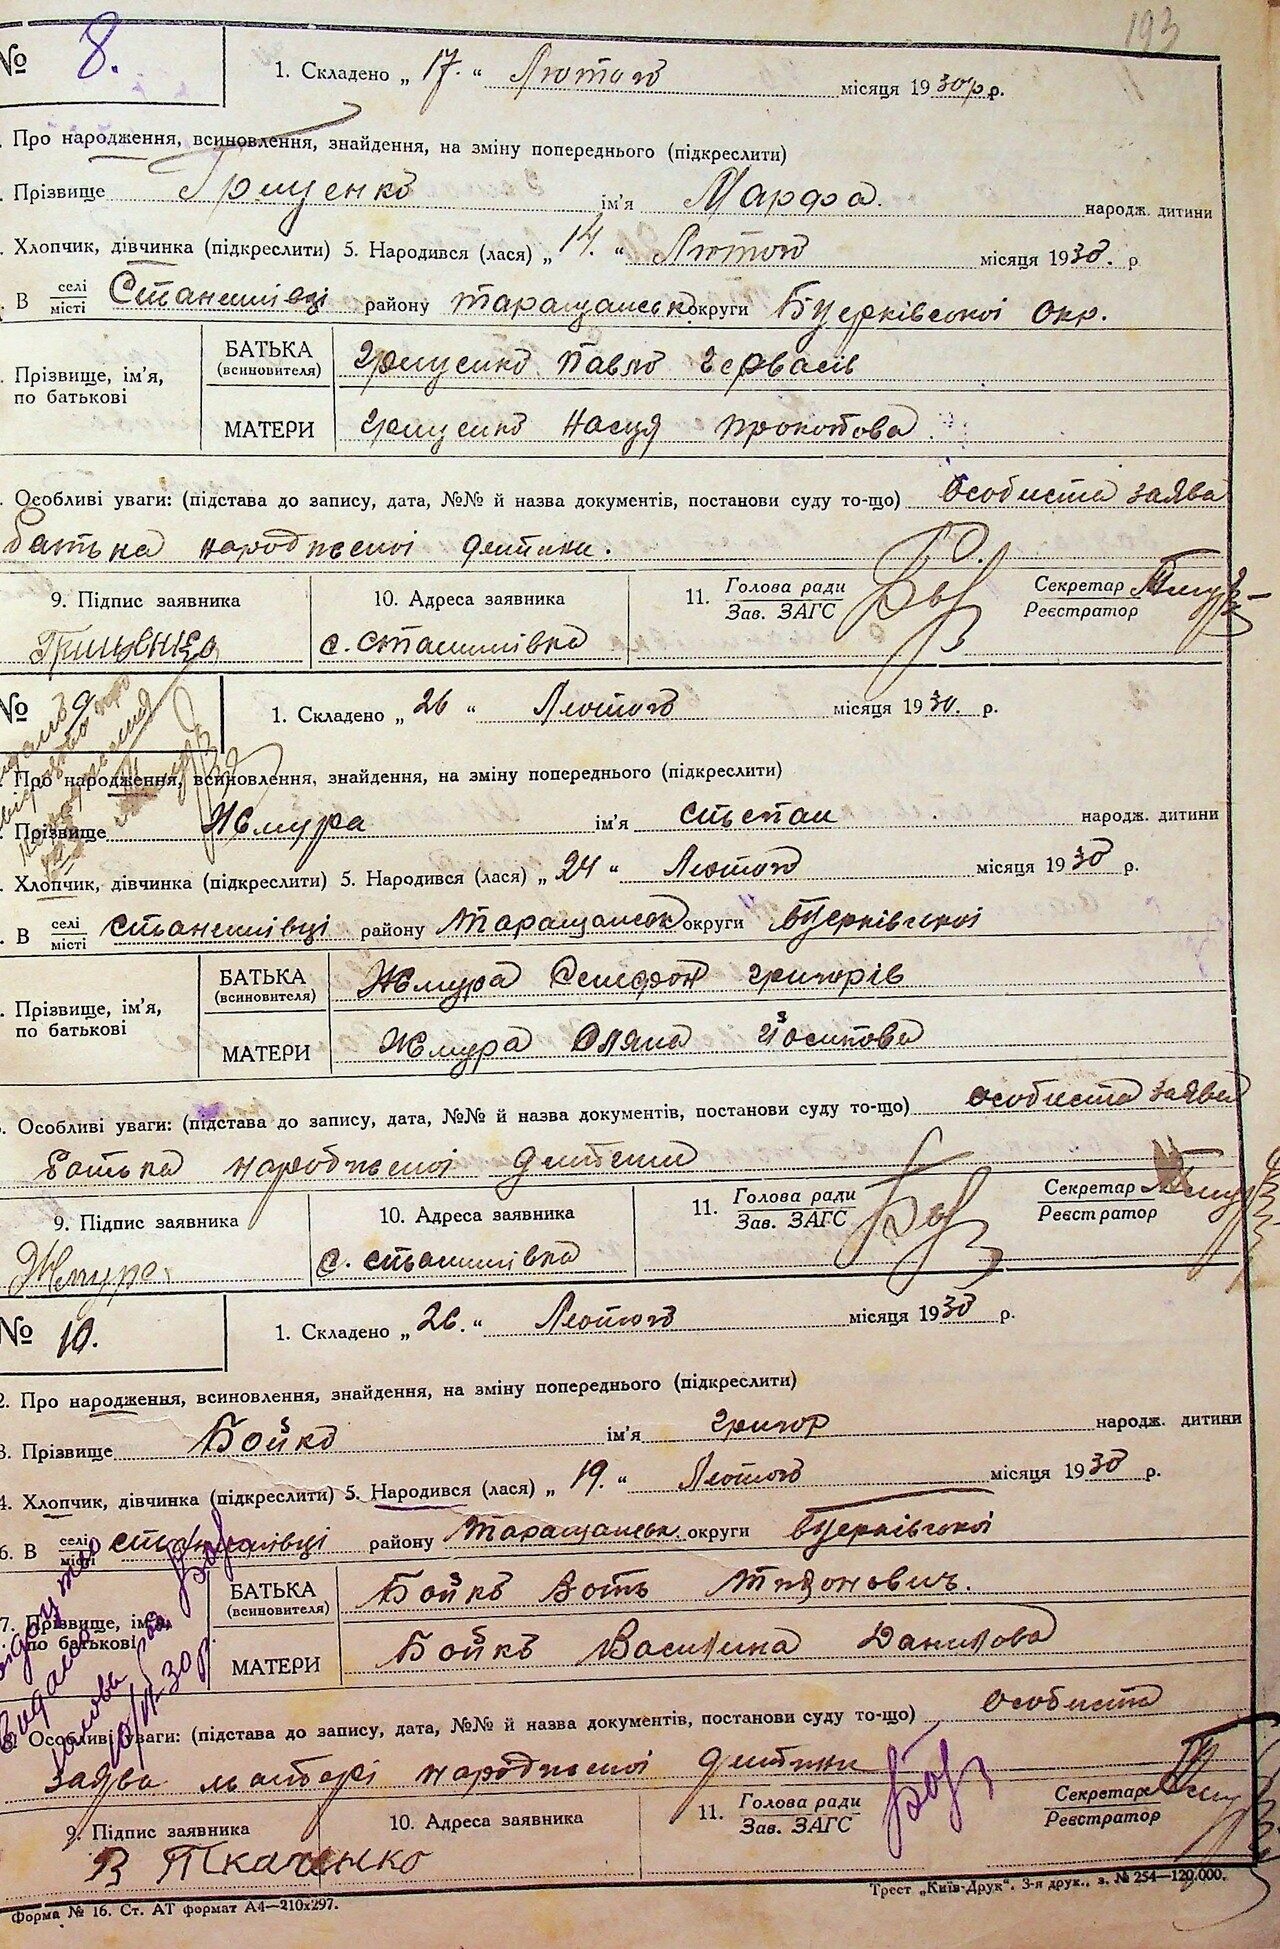 193
№ 8.
1. Складено „ 17. “ Лютого місяця 1930 р. р.
Про народження, всиновлення, знайдення, на зміну попереднього (підкреслити)
Прізвище Грищенко ім'я Марфа. народж. дитини
Хлопчик, дівчинка (підкреслити) 5. Народився (лася) „ 14. “ Лютого місяця 1930. р
В селі місті Станишівці району Таращанськ округи БЦерківської окр.
Прізвище, ім'я, по батькові
БАТЬКА (всиновителя) Грищенко Павло Гервасів
МАТЕРИ Грищенко Настя Прокопова
Особливі уваги: (підстава до запису, дата, №№ й назва документів, постанови суду то-що) Особиста заява
батька народженої дитини.
9. Підпис заявника 10. Адреса заявника 11. Голова ради Зав. ЗАГС Секретар Реєстратор
с. Станишівка
№ 9
1. Складено „ 26 “ Лютого місяця 1930. р.
Про народження, всиновлення, знайдення, на зміну попереднього (підкреслити)
Прізвище Жмура ім'я Стьпан народж. дитини
Хлопчик, дівчинка (підкреслити) 5. Народився (лася) „ 24 “ Лютого місяця 1930 р.
В селі місті Станишівці району Таращанськ округи БЦерківської
Прізвище, ім'я, по батькові
БАТЬКА (всиновителя) Жмура Ксенофон Григорів
МАТЕРИ Жмура Оляна Йосипова
Особливі уваги: (підстава до запису, дата, №№ й назва документів, постанови суду то-що) особиста заява
батька народженої дитини
9. Підпис заявника 10. Адреса заявника 11. Голова ради Зав. ЗАГС Секретар Реєстратор
Жмура с. Станишівка
№ 10.
1. Складено „ 26. “ Лютого місяця 1930 р.
2. Про народження, всиновлення, знайдення, на зміну попереднього (підкреслити)
3. Прізвище Бойко ім'я Григор народж. дитини
4. Хлопчик, дівчинка (підкреслити) 5. Народився (лася) „ 19. “ Лютого місяця 1930 р.
6. В селі місті Станишівці району Таращанськ округи БЦерківської
7. Прізвище, ім'я, по батькові
БАТЬКА (всиновителя) Бойко Тихонович.
МАТЕРИ Бойко Василина Данилова
8. Особливі уваги: (підстава до запису, дата, №№ й назва документів, постанови суду то-що) особиста
заява матері народженої дитини
9. Підпис заявника 10. Адреса заявника 11. Голова ради Зав. ЗАГС Секретар Реєстратор
В Ткаченко
Форма № 16. Ст. АТ формат А4—210x297.
Трест „Київ-Друк“. 3-я друк., з. № 254—120.000.